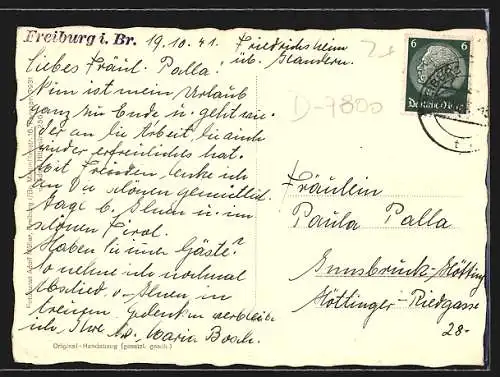 Freiburg i. Br. 19.10.41. Friedrichsheim
üb. Kandern.
Liebes Fräul. Palla!
Nun ist mein Urlaub
ganz zu Ende u. geht wie-
der an die Arbeit, die auch
wieder erfreuliches hat.
Mit Freuden, denke ich
an die schönen gemütlich.
Tage b. Ihnen u. im
schönen Tirol.
Haben Sie immer Gäste?
So nehme ich nochmal
Abschied v. Ihnen, in
treuem gedenken verbleibe
ich, Ihre Maria Bosch.
Original-Handabzug (gesetzl. gesch.)
D-7800
6 6
Deutsches Reich
Fräulein
Paula Palla
Innsbruck-Hötting
Höttinger-Riedgasse
28-